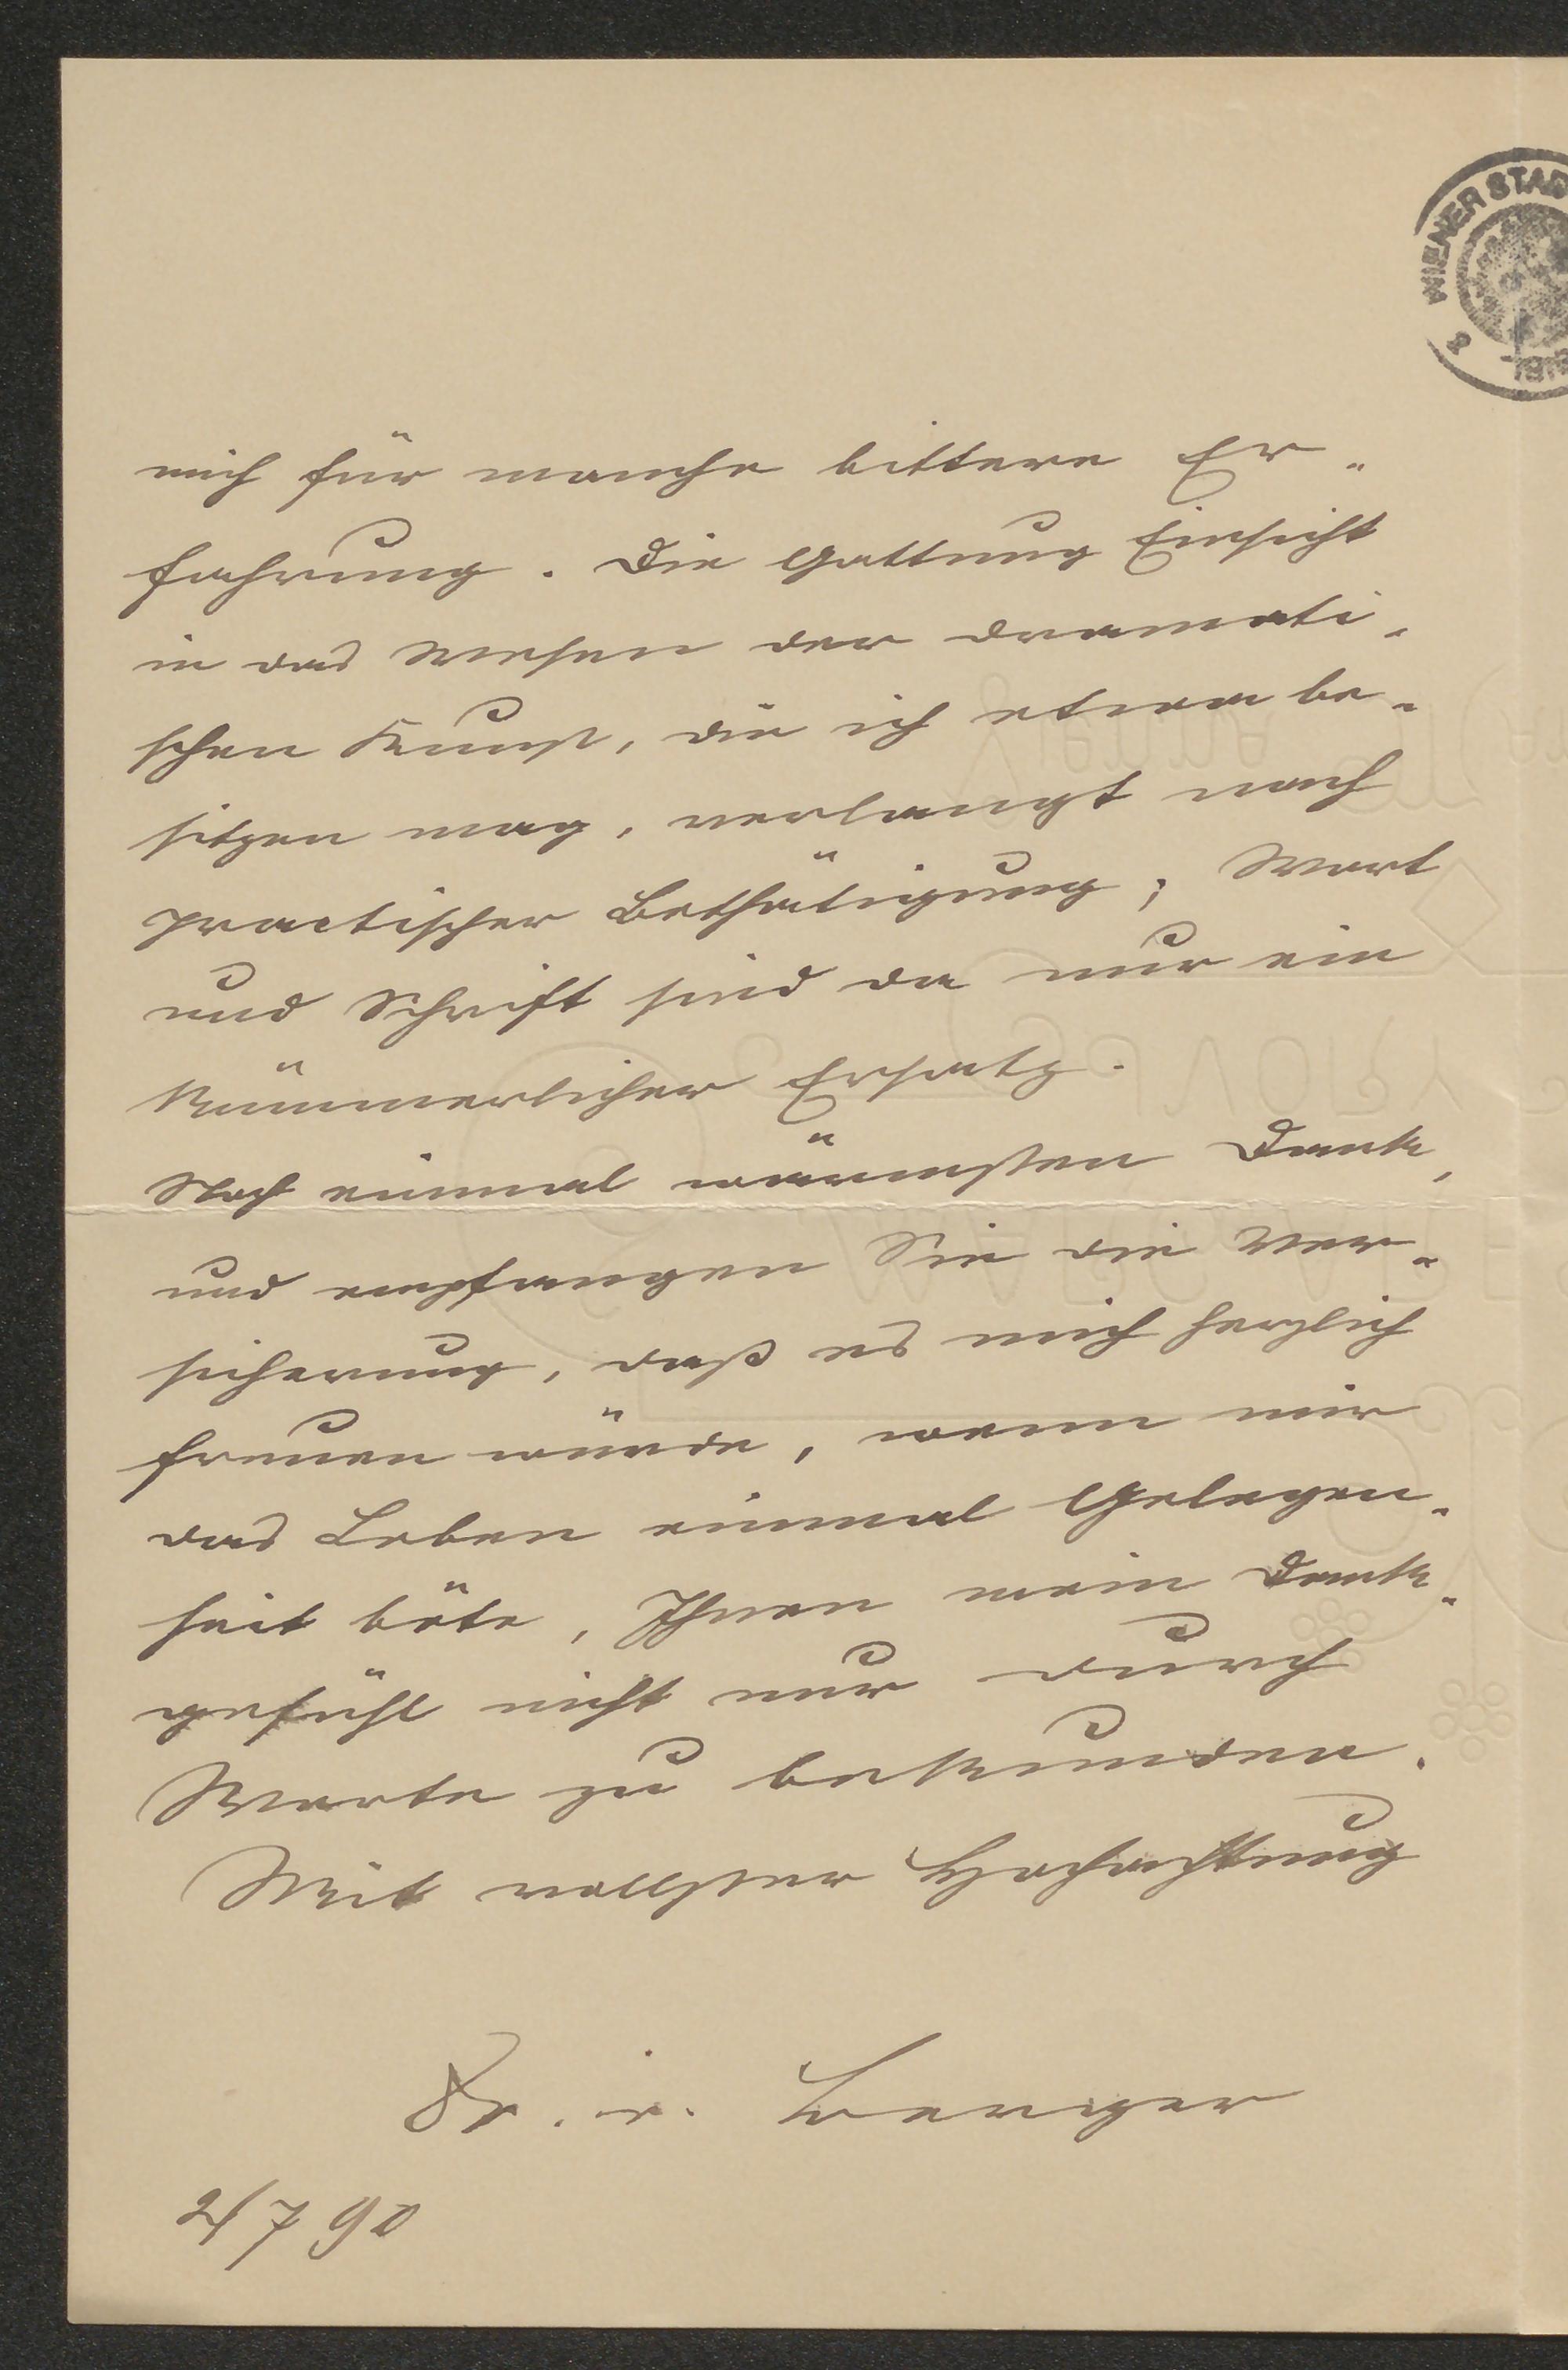 WIENER STAD
mich für manche bittere Er-
fahrung. Die Gattung Einsicht
in das Wesen der dramati-
schen Kunst, die ich etwa be-
sitzen mag, verlangt nach
practischer Bethätigung; Wort
und Schrift sind da nur ein
kümmerlicher Ersatz.
Noch einmal wärmsten Dank,
und empfangen Sie die Ver-
sicherung, daß es mich herzlich
freuen würde, wenn mir
das Leben einmal Gelegen-
heit böte, Ihnen mein Dank-
gefühl nicht nur durch
Worte zu bekunden.
Mit vollster Hochachtung
Dr. v. Berger
2/7 90